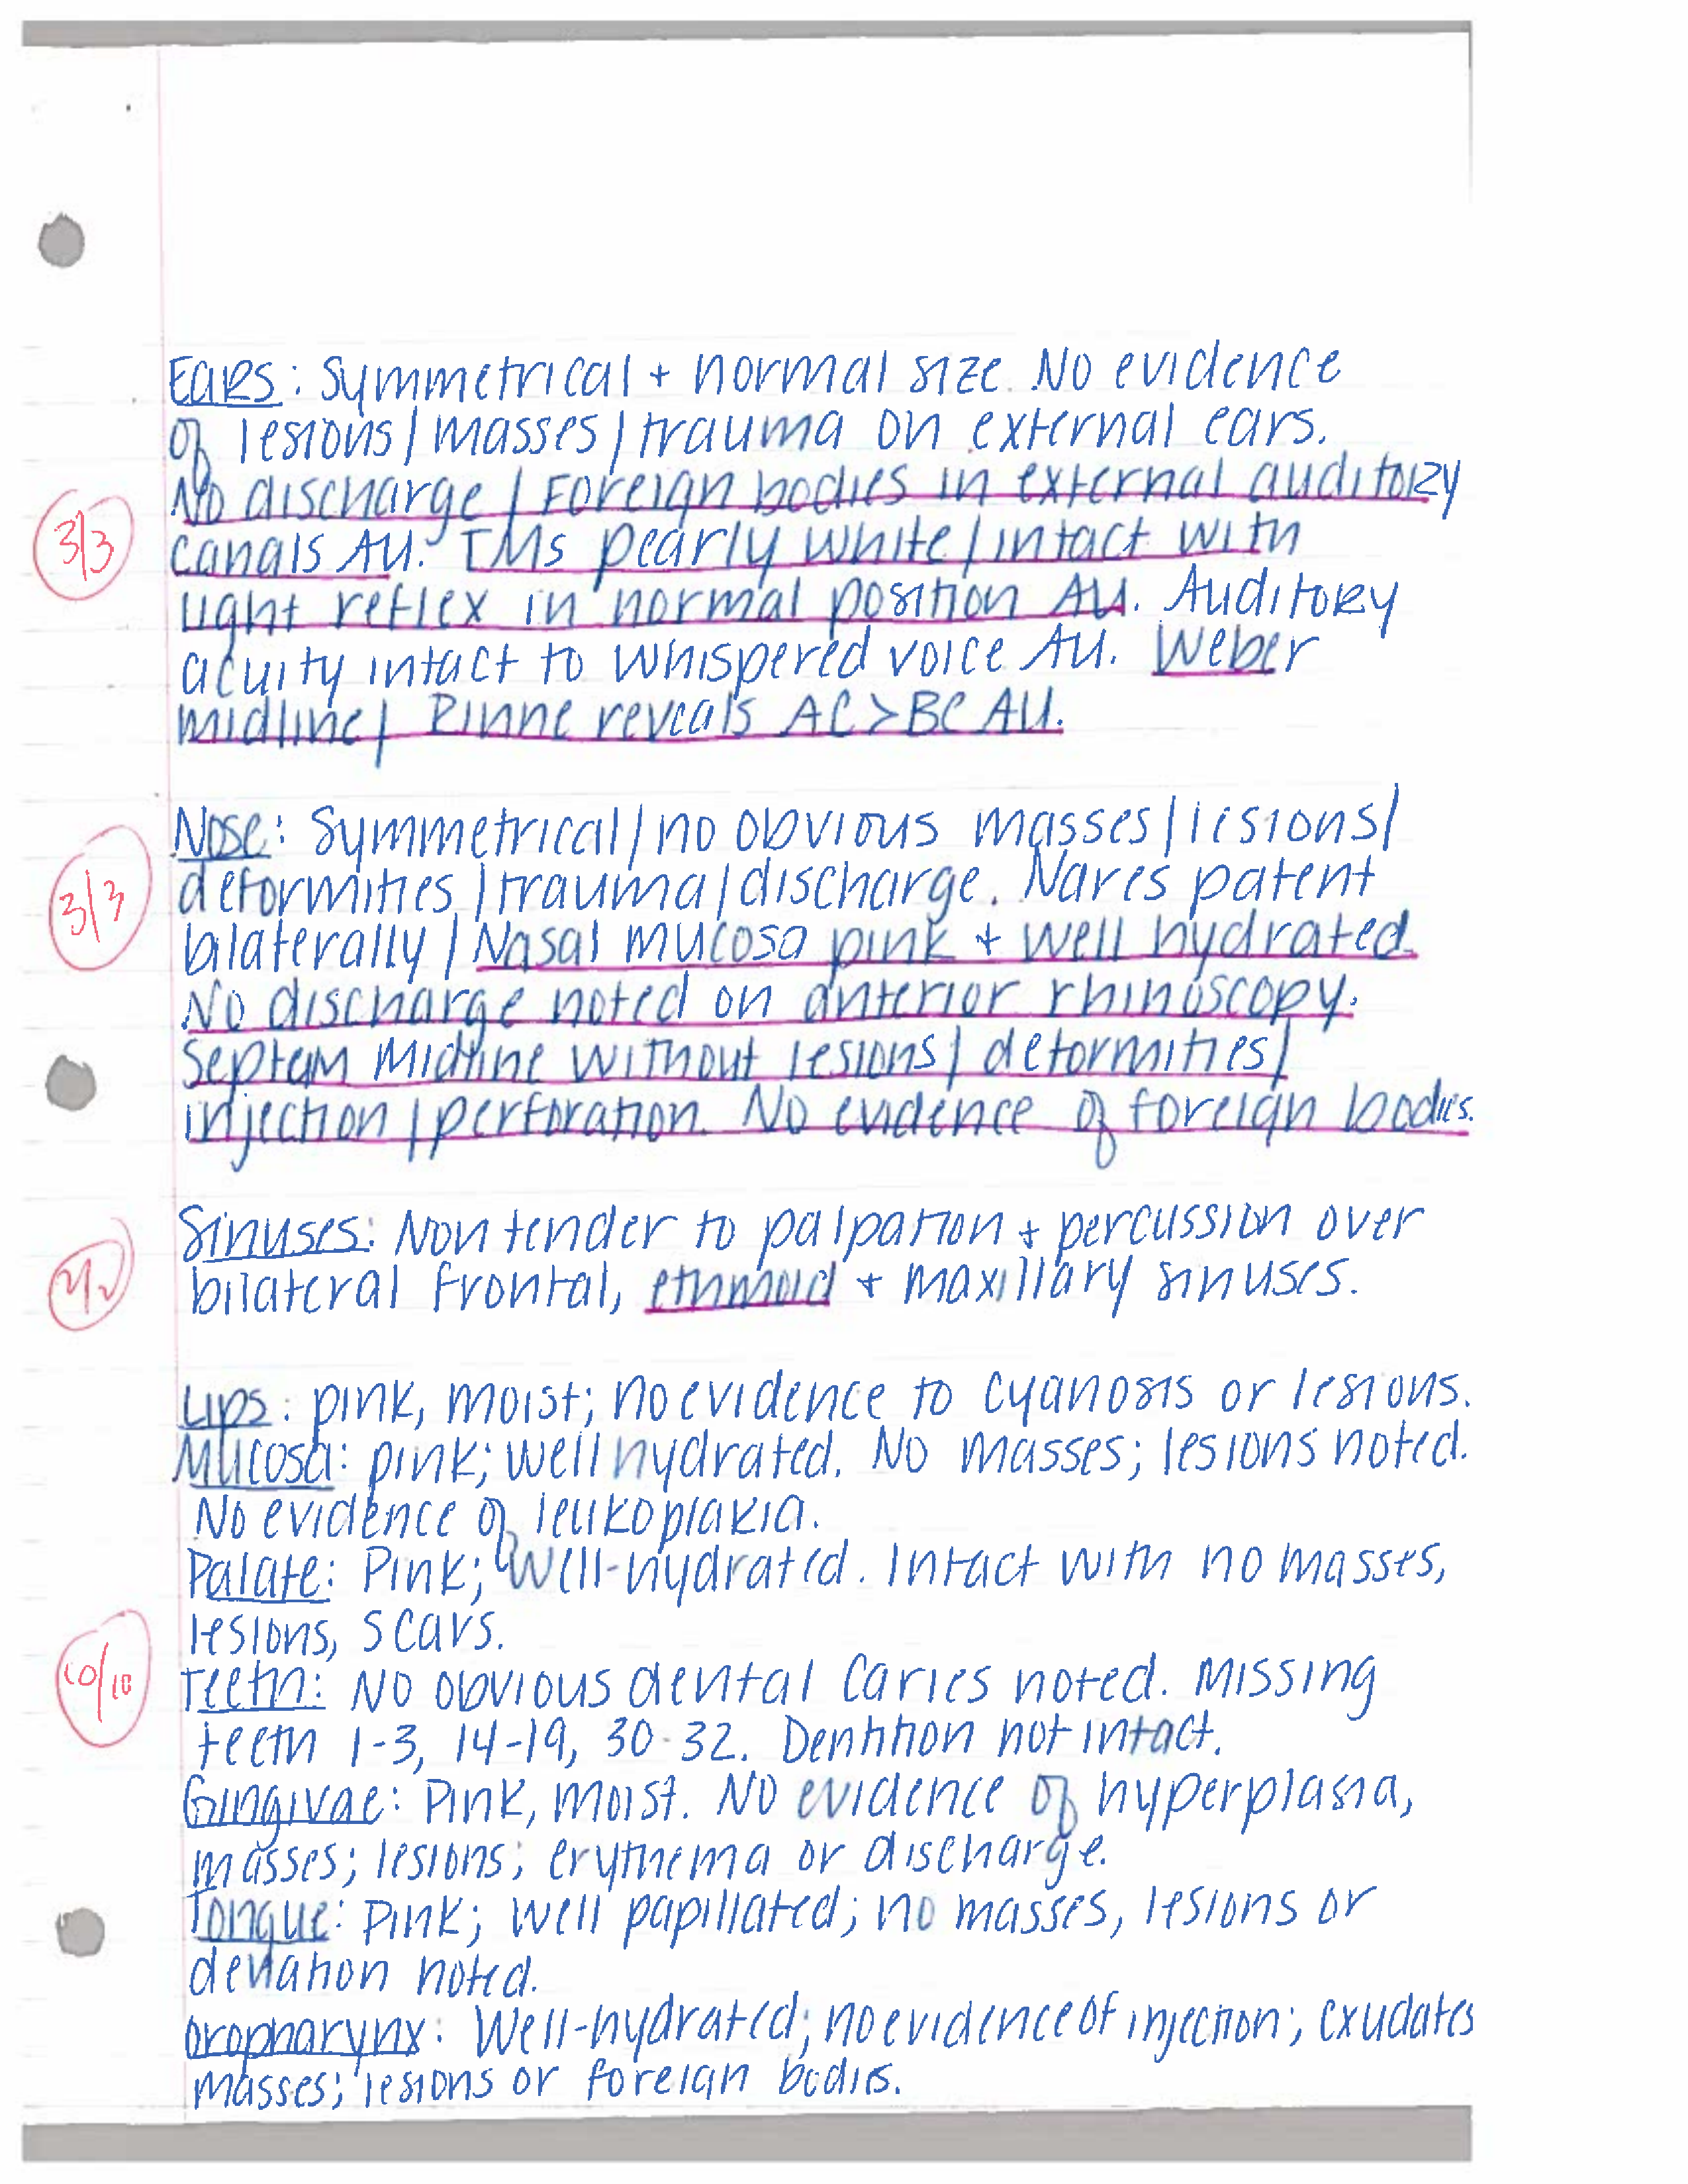 Ears: Symmetrical + normal size. No evidence
of lesions/masses/trauma on external ears.
No discharge/Foreign bodies in external auditory
3/3
canals AU. TMs pearly white/intact with
light reflex in normal position AU. Auditory
acuity intact to whispered voice AU. Weber
midline/ Rinne reveals AC>BC AU.
Nose: Symmetrical/no obvious masses/lesions/
3/3
deformities/trauma/discharge. Nares patent
bilaterally/Nasal mucosa pink + well hydrated.
No discharge noted on anterior rhinoscopy.
Septum Midline without lesions/deformities/
injection/perforation. No evidence of foreign bodies.
Sinuses: Non tender to palpation + percussion over
2/2
bilateral frontal, ethmoid + maxillary sinuses.
Lips: pink, moist; no evidence to cyanosis or lesions.
Mucosa: pink; well hydrated. No masses; lesions noted.
No evidence of leukoplakia.
Palate: Pink; Well-hydrated. Intact with no masses,
lesions, scars.
10/10
Teeth: No obvious dental caries noted. Missing
teeth 1-3, 14-19, 30-32. Dentition not intact.
Gingivae: Pink, moist. No evidence of hyperplasia,
masses; lesions; erythema or discharge.
Tongue: Pink; well papillated; no masses, lesions or
deviation noted.
Oropharynx: Well-hydrated; no evidence of injection; exudates
masses; lesions or foreign bodies.